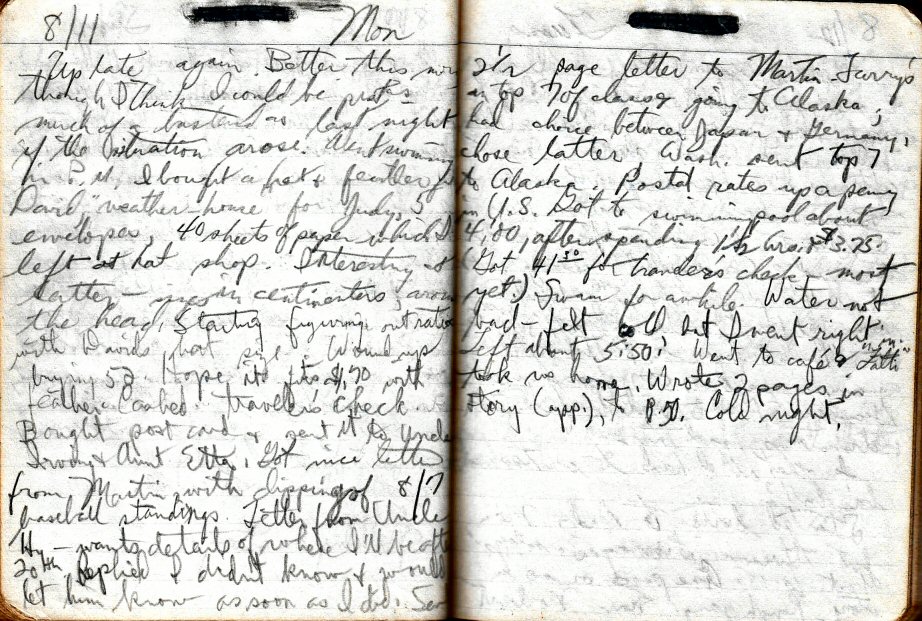 8/11 Mon
Up late again. Better this mor
though I think I could be
much of a bastard as last night
if the situation arose. Went swimming
in P.M. I bought a hat & feather for
David, weather-house for Judy, 5
envelopes, 40 sheets of paper which I
left at hat shop. Interesting
latter — in centimeters around
the head. Starting figuring out ratio
with David's hat size. Wound up
buying 58. Hope it fits. $4.70 with
feather. Cashed traveler's check
Bought post card & sent it to Uncle
Irving & Aunt Etta. Got nice letter
from Martin with clipping of 8/7
baseball standings. Letter from Uncle
Hy — wants details of where I'll be after
20th. Replied I didn't know & would
let him know as soon as I did. Sent
2 1/2 page letter to Martin. Jerry's
in top 7 of class going to Alaska;
had choice between Japan & Germany,
chose latter. Wash. sent top 7
to Alaska. Postal rates up a penny
in U.S. Got to swimming pool about
4:00, after spending 1 1/2 hrs. & $3.75
(Got 41.50 for traveler's check — most
yet.) Swam for awhile. Water not
bad — felt cold, but I went right in.
Left about 5:50. Went to café &
took us home. Wrote 2 pages in
story (app.), to P. 50. Cold night.